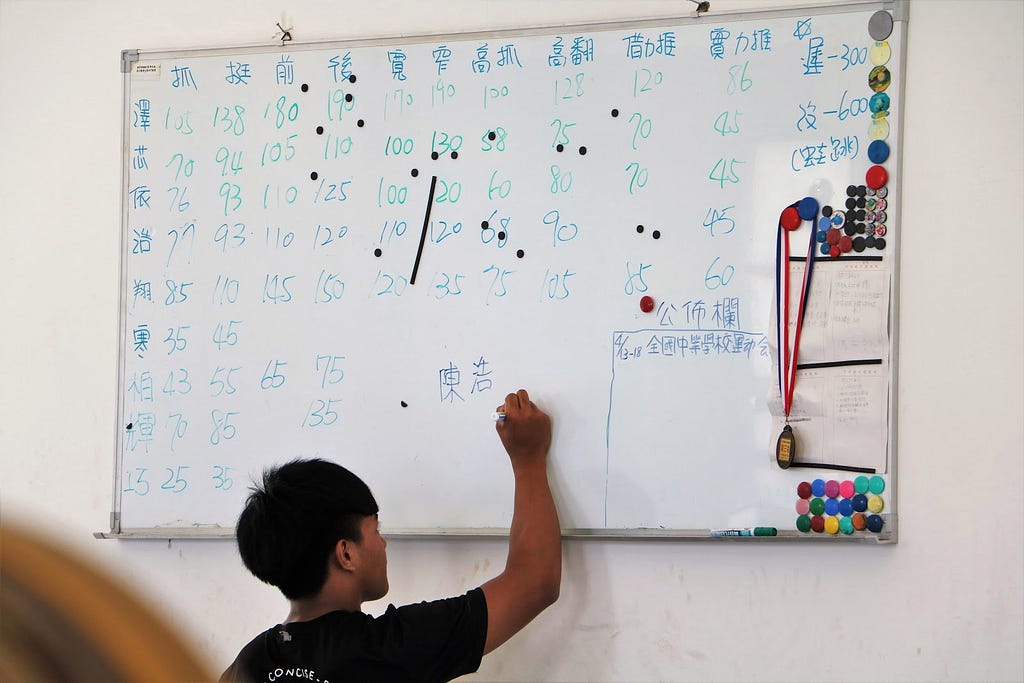 抓 挺 前 後 寬 窄 高抓 高翻 借力推 實力推
澤 105 138 180 190 170 190 100 128 120 86
芯 70 94 105 110 100 130 58 75 70 45
依 76 93 110 125 100 120 60 80 70 45
浩 77 93 110 120 110 120 68 90 45
翔 85 110 145 150 120 135 75 105 85 60
寒 35 45
柏 43 55 65 75
輝 70 85 135
巧 25 35
遲-300
沒-600
(蛙跳)
公佈欄
4/13-18 全國中等學校運動会
陳浩
CONCISE